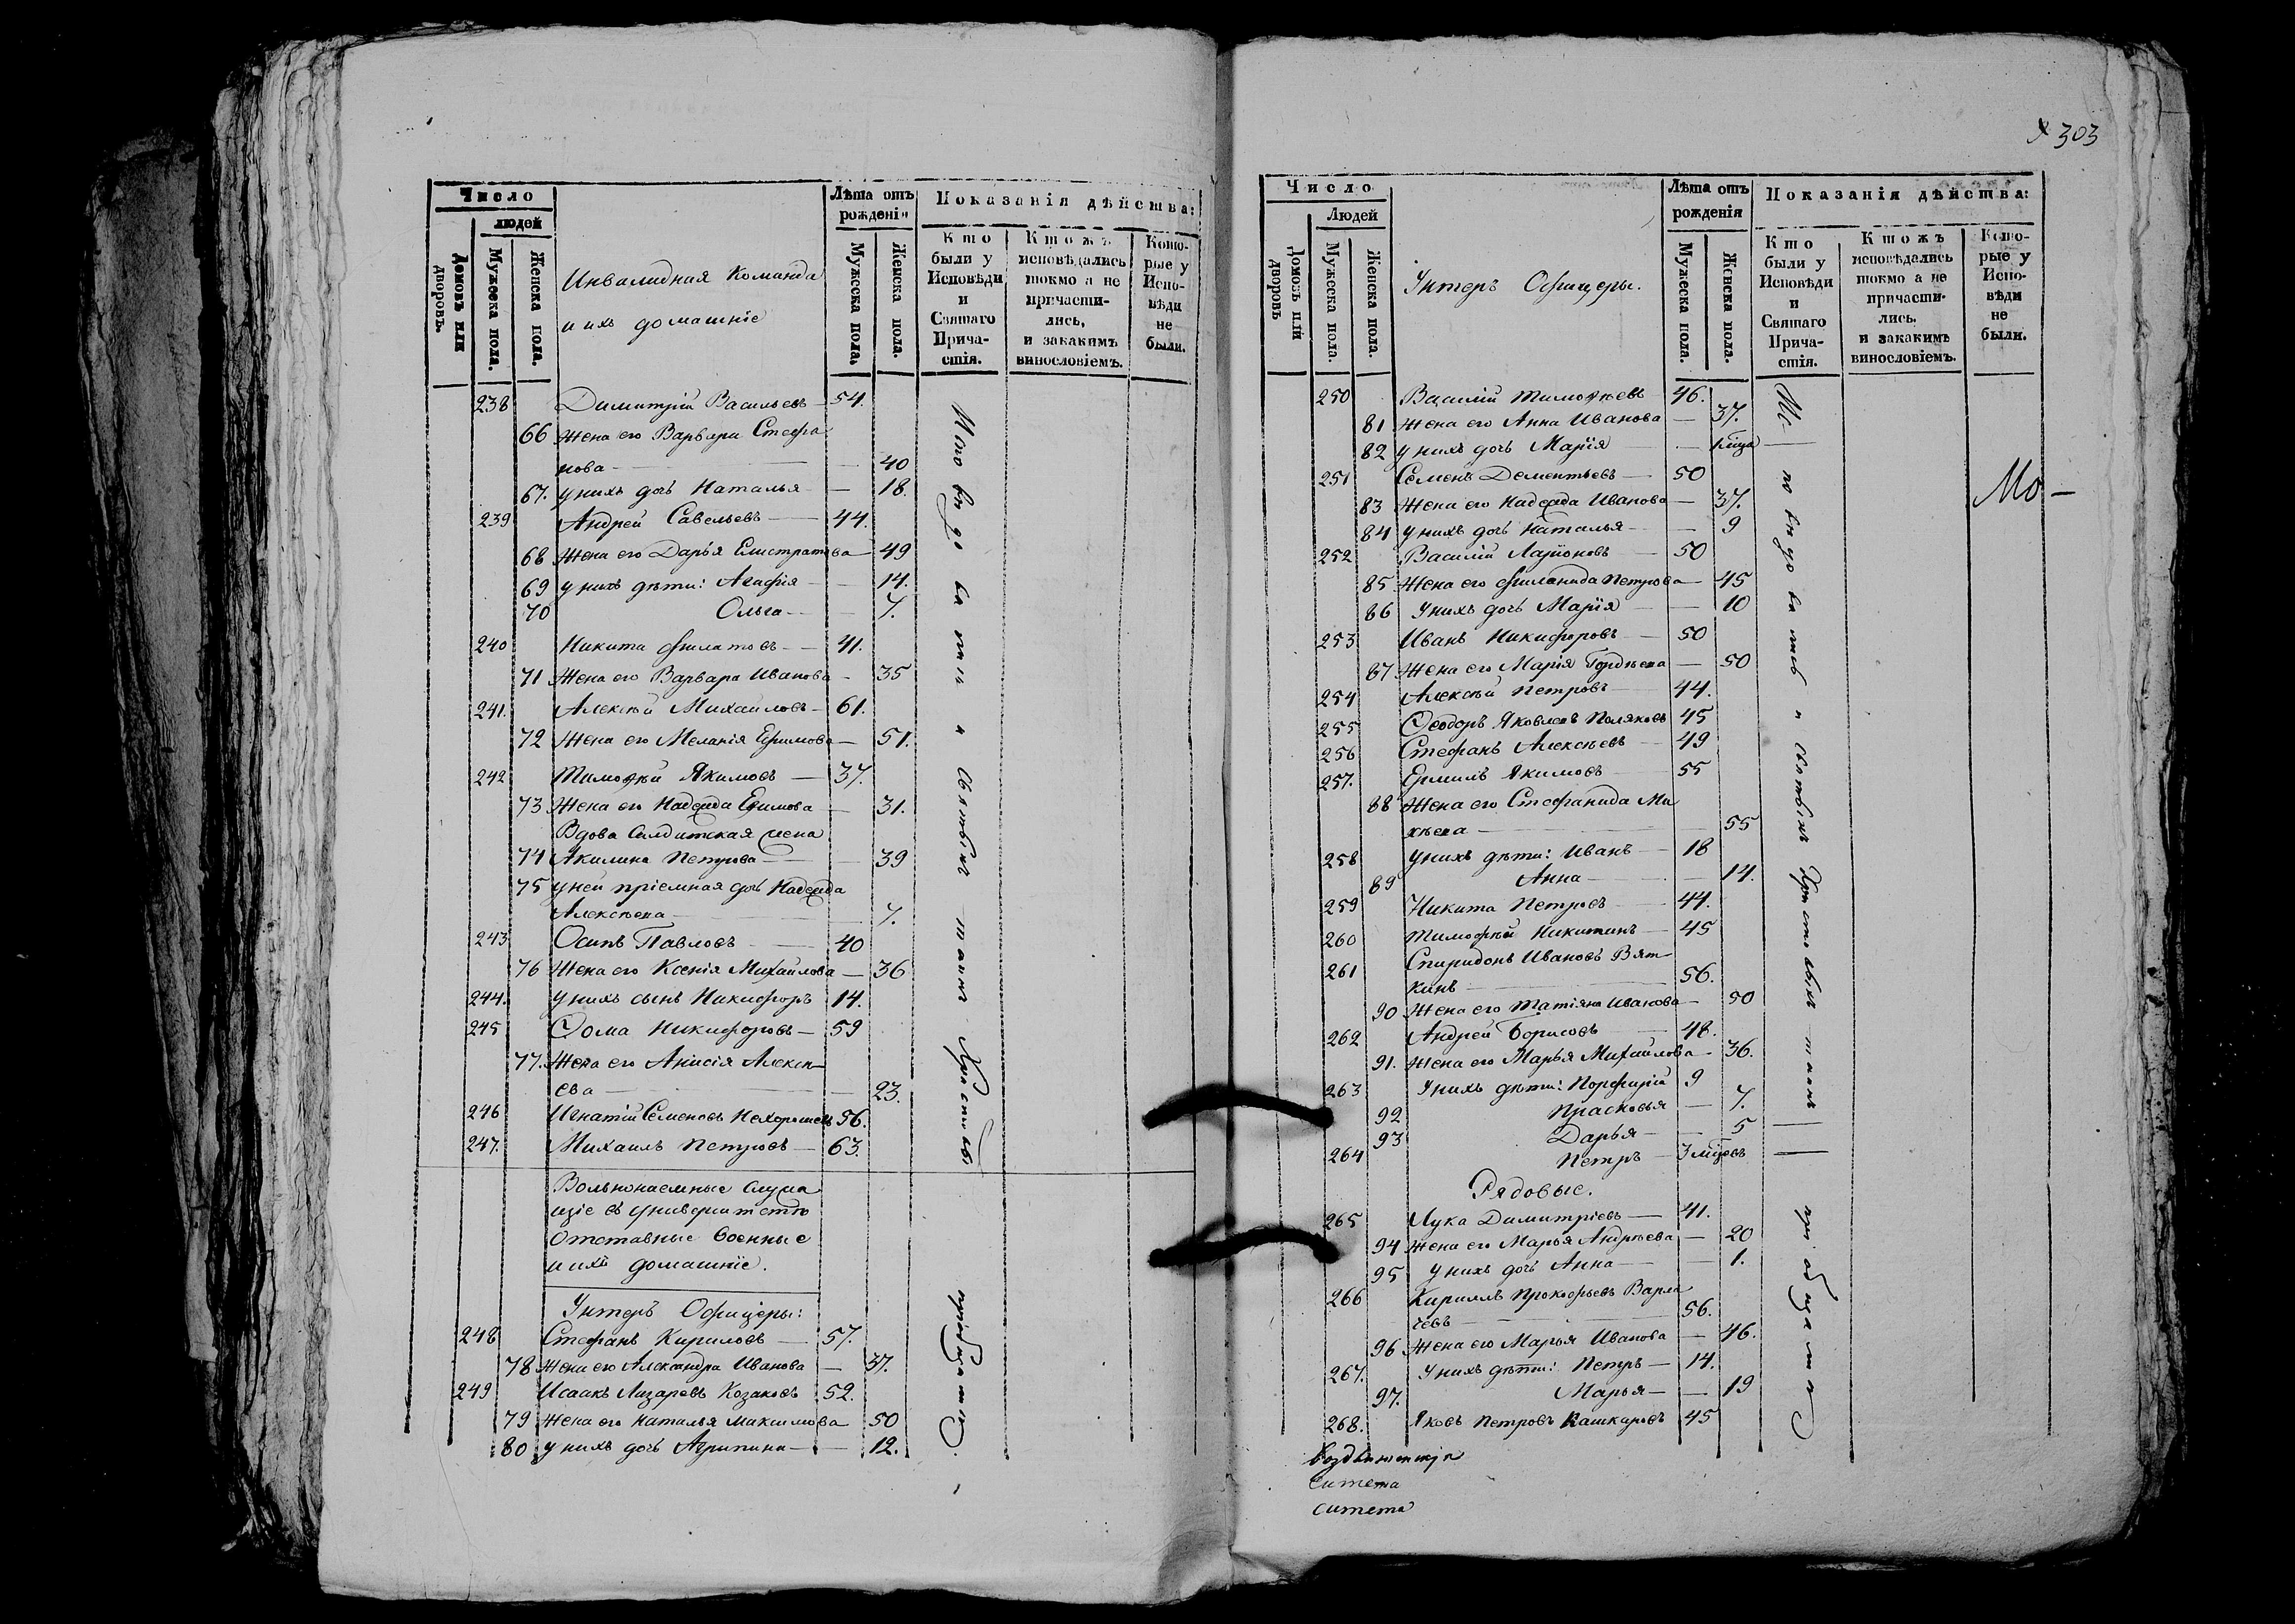 303
Число
людей
Домовъ или дворовъ.
Мужеска пола.
Женска пола.
Инвалидная Команда
и ихъ домашніе
Лѣта отъ рожденія
Мужеска пола.
Женска пола.
Показанія дѣйства:
Кто были у Исповѣди и Святаго Причастія.
Ктожъ исповѣдались токмо а не причастились, и закакимъ винословіемъ.
Которые у Исповѣди не были.
238 Димитрій Васильевъ — 54.
66 Жена его Варвара Стефа
нова — 40
67. у нихъ дочь Наталья — 18.
239 Андрей Савельевъ — 44.
68 Жена его Дарья Елистратова — 49
69 у нихъ дѣти: Агафія — 14.
70 Ольга — 7.
240 Никита Филатовъ — 41.
71 Жена его Варвара Иванова — 35
241. Алексѣй Михайловъ — 61.
72 Жена его Меланія Ефимова — 51.
242 Тимоѳѣй Якимовъ — 37.
73 Жена его Надежда Ефимова — 31.
Вдова Солдатская жена
74 Акилина Петрова — 39
75 у ней пріемная дочь Надежда
Алексѣева — 7.
243 Осипъ Павловъ — 40
76 Жена его Ксенія Михайлова — 36
244. у нихъ сынъ Никифоръ 14.
245 Ѳома Никифоровъ — 59
77. Жена его Анисія Алексѣ
ева — 23.
246 Игнатій Семеновъ Нехорошевъ 56.
247. Михаилъ Петровъ — 63.
Вольнонаемные служа
щіе въ университетѣ
Отставные военные
и ихъ домашніе.
Унтеръ Офицеры:
248 Стефанъ Кириловъ — 57.
78 Жена его Александра Иванова — 37.
249 Исаакъ Лазаревъ Козаковъ 52.
79 Жена его Наталья Максимова 50
80 у нихъ дочь Агрипина — 12.
Число
Людей
Домовъ или дворовъ
Мужеска пола.
Женска пола.
Унтеръ Офицеры.
Лѣта отъ рожденія
Мужеска пола.
Женска пола.
Показанія дѣйства:
Кто были у Исповѣди и Святаго Причастія.
Ктожъ исповѣдались токмо а не причастились. и закакимъ винословіемъ.
Которые у Исповѣди не были.
250 Василій Тимоѳѣевъ 46.
81 Жена его Анна Иванова — 37.
82 у нихъ дочь Марія —
251 Семенъ Дементьевъ — 50
83 Жена его Надежда Иванова — 37.
84 у нихъ дочь Наталья — 9
252 Василій Ларіоновъ — 50
85 Жена его Филанида Петрова — 45
86 у нихъ дочь Марія — 10
253 Иванъ Никифоровъ — 50
87 Жена его Марія Гордѣева — 50
254 Алексѣй Петровъ 44.
255 Ѳеодоръ Яковлевъ Поляковъ 45
256 Стефанъ Алексѣевъ — 49
257. Ермилъ Якимовъ 55
88 Жена его Стефанида Ми
хѣева — 55
258 у нихъ дѣти: Иванъ — 18
89 Анна — 14.
259 Никита Петровъ — 44.
260 Тимофѣй Никитинъ — 45
261 Спиридонъ Ивановъ Вят
кинъ — 56.
90 Жена его Татіяна Иванова — 50
262 Андрей Борисовъ — 48.
91. Жена его Марья Михайлова — 36.
263 У нихъ дѣти: Порфирій 9
92 Прасковья — 7.
93 Дарья — 5
264 Петръ — 3 мѣсецовъ
Рядовые.
265 Лука Димитріевъ — 41.
94 Жена его Марья Андрѣева — 20
95 у нихъ дочь Анна — 1.
266 Кириллъ Прокофьевъ Варла
човъ — 56.
96 Жена его Марья Иванова — 46.
267. У нихъ дѣти: Петръ — 14.
97. Марья — 19
268. Яковъ Петровъ Кашкаровъ 45